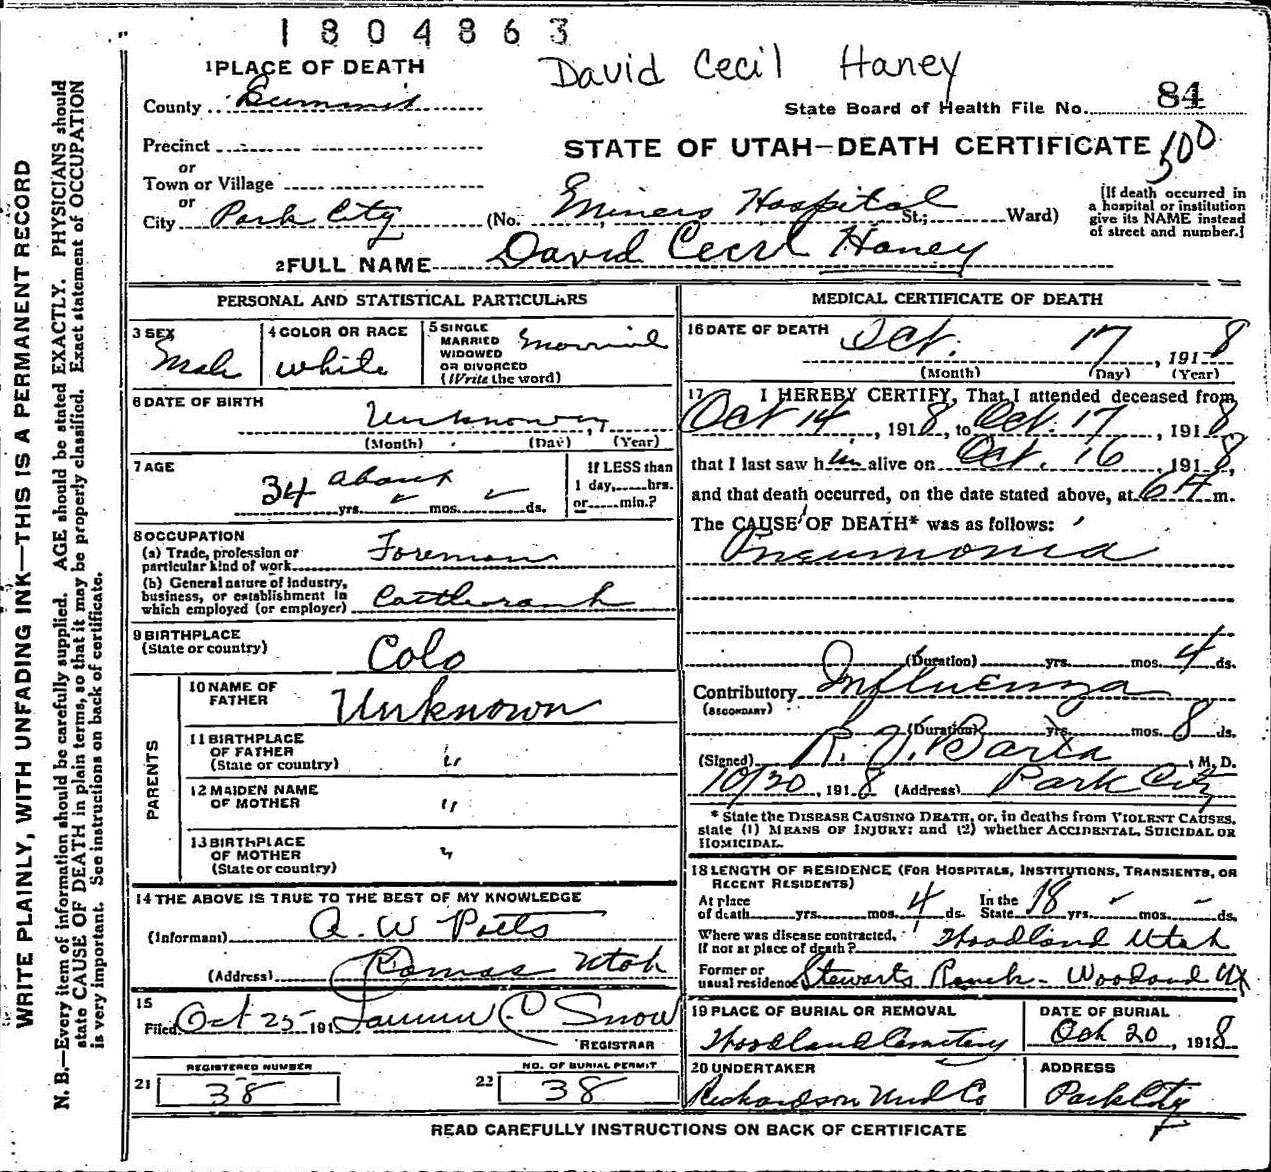 1804863
David Cecil Haney
1 PLACE OF DEATH
County Summit
State Board of Health File No. 84
Precinct
STATE OF UTAH—DEATH CERTIFICATE
500
or
Town or Village
or
City Park City (No. Miners Hospital St.; Ward)
[If death occurred in
a hospital or institution
give its NAME instead
of street and number.]
2 FULL NAME David Cecil Haney
PERSONAL AND STATISTICAL PARTICULARS
3 SEX
Male
4 COLOR OR RACE
white
5 SINGLE
MARRIED
WIDOWED
OR DIVORCED
(Write the word)
Married
6 DATE OF BIRTH
Unknown
(Month) (Day) (Year)
7 AGE
34 about
yrs. mos. ds.
If LESS than
1 day, hrs.
or min.?
8 OCCUPATION
(a) Trade, profession or
particular kind of work Foreman
(b) General nature of industry,
business, or establishment in
which employed (or employer) Cattle ranch
9 BIRTHPLACE
(State or country)
Colo
PARENTS
10 NAME OF
FATHER
Unknown
11 BIRTHPLACE
OF FATHER
(State or country)
"
12 MAIDEN NAME
OF MOTHER
"
13 BIRTHPLACE
OF MOTHER
(State or country)
"
14 THE ABOVE IS TRUE TO THE BEST OF MY KNOWLEDGE
(Informant) A. W. Potts
(Address) Kamas Utah
15
Filed Oct 25 191 C Snow
REGISTRAR
REGISTERED NUMBER
21 38
NO. OF BURIAL PERMIT
22 38
MEDICAL CERTIFICATE OF DEATH
16 DATE OF DEATH
Oct. 17, 1918
(Month) (Day) (Year)
17 I HEREBY CERTIFY, That I attended deceased from
Oct 14, 1918, to Oct. 17, 1918
that I last saw him alive on Oct. 16, 1918,
and that death occurred, on the date stated above, at 6 A m.
The CAUSE OF DEATH* was as follows:
Pneumonia
(Duration) yrs. mos. 4 ds.
Contributory Influenza
(SECONDARY)
(Duration) yrs. mos. 8 ds.
(Signed) R. J. Barta, M. D.
10/20, 1918 (Address) Park City
* State the DISEASE CAUSING DEATH, or, in deaths from VIOLENT CAUSES,
state (1) MEANS OF INJURY: and (2) whether ACCIDENTAL, SUICIDAL OR
HOMICIDAL.
18 LENGTH OF RESIDENCE (FOR HOSPITALS, INSTITUTIONS, TRANSIENTS, OR
RECENT RESIDENTS)
At place
of death yrs. mos. 4 ds. In the
State 18 yrs. - ds.
Where was disease contracted,
If not at place of death? Woodland Utah
Former or
usual residence Stewarts Ranch - Woodland Ut
19 PLACE OF BURIAL OR REMOVAL
Woodland Cemetery
DATE OF BURIAL
Oct 20, 1918
20 UNDERTAKER
Richardson Und Co
ADDRESS
Park City
READ CAREFULLY INSTRUCTIONS ON BACK OF CERTIFICATE
WRITE PLAINLY, WITH UNFADING INK—THIS IS A PERMANENT RECORD
N. B.—Every item of information should be carefully supplied. AGE should be stated EXACTLY. PHYSICIANS should
state CAUSE OF DEATH in plain terms, so that it may be properly classified. Exact statement of OCCUPATION
is very important. See instructions on back of certificate.